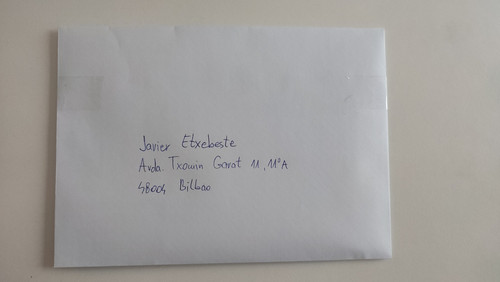 Javier Etxebeste
Avda Txomin Garat 11, 11ºA
48004 Bilbao